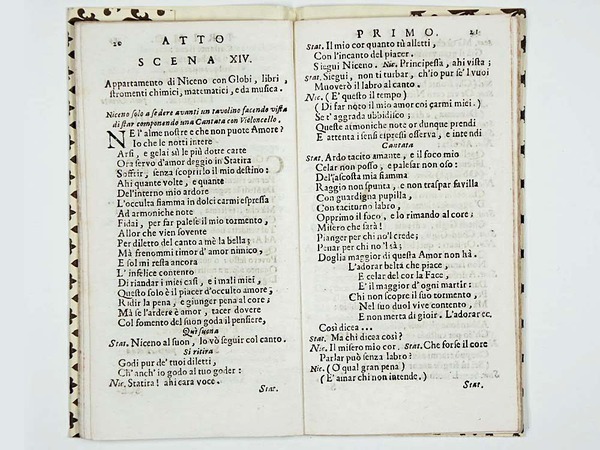 20 ATTO
SCENA XIV.
Appartamento di Niceno con Globi, libri,
stromenti chimici, matematici, e da musica.
Niceno solo a sedere avanti un tavolino facendo vista
di star componendo una Cantata con Violoncello.
NE l'alme nostre e che non puote Amore?
Io che le notti intere
Arsi, e gelai sù le più dotte carte
Ora servo d'amor deggio in Statira
Soffrir, senza scoprirlo il mio destino:
Ahi quante volte, e quante
Del'interno mio ardore
L'occulta fiamma in dolci carmi espressa
Ad armoniche note
Fidai, per far palese il mio tormento,
Allor che vien sovente
Per diletto del canto a mè la bella;
Mà frenommi timor d'amor nimico,
E sol mi resta ancora
L'infelice contento
Di riandar i miei casi, e i mali miei,
Questo solo è il piacer d'occulto amore,
Ridir la pena, e giunger pena al core;
Mà se l'ardere è amor, tacer dovere
Col fomento del suon goda il pensiere,
Qui suona
Stat. Niceno al suon, lo vò seguir col canto.
Si ritira
Godi pur de' tuoi diletti,
Ch'anch'io godo al tuo goder:
Nic. Statira! ahi cara voce.
Stat.
PRIMO. 21
Stat. Il mio cor quanto tù alletti,
Con l'incanto del piacer.
Siegui Niceno. Nic. Principessa, ahi vista;
Stat. Siegui, non ti turbar, ch'io pur se'l vuoi
Muoverò il labro al canto.
Nic. (E' questo il tempo)
(Di far noto il mio amor coi carmi miei.)
Se t'aggrada ubbidisco;
Queste armoniche note or dunque prendi
E attenta i sensi espressi osserva, e intendi
Cantata
Stat. Ardo tacito amante, e il foco mio
Celar non posso, e palesar non oso:
Del'ascosta mia fiamma
Raggio non spunta, e non traspar favilla
Con guardigna pupilla,
Con taciturno labro,
Opprimo il foco, e lo rimando al core;
Misero che farà!
Pianger per chi no'l crede;
Penar per chi no'l sà;
Doglia maggior di questa Amor non hà.
L'adorar beltà che piace
E celar del cor la Face,
E' il maggior d'ogni martir:
Chi non scopre il suo tormento,
Nel suo duol vive contento,
E non merta di gioir. L'adorar ec.
Così dicea...
Stat. Ma chi dicea così?
Nic. Il misero mio cor. Stat. Che forse il core
Parlar può senza labro?
Nic. (O qual gran pena)
(E' amar chi non intende.)
Stat.